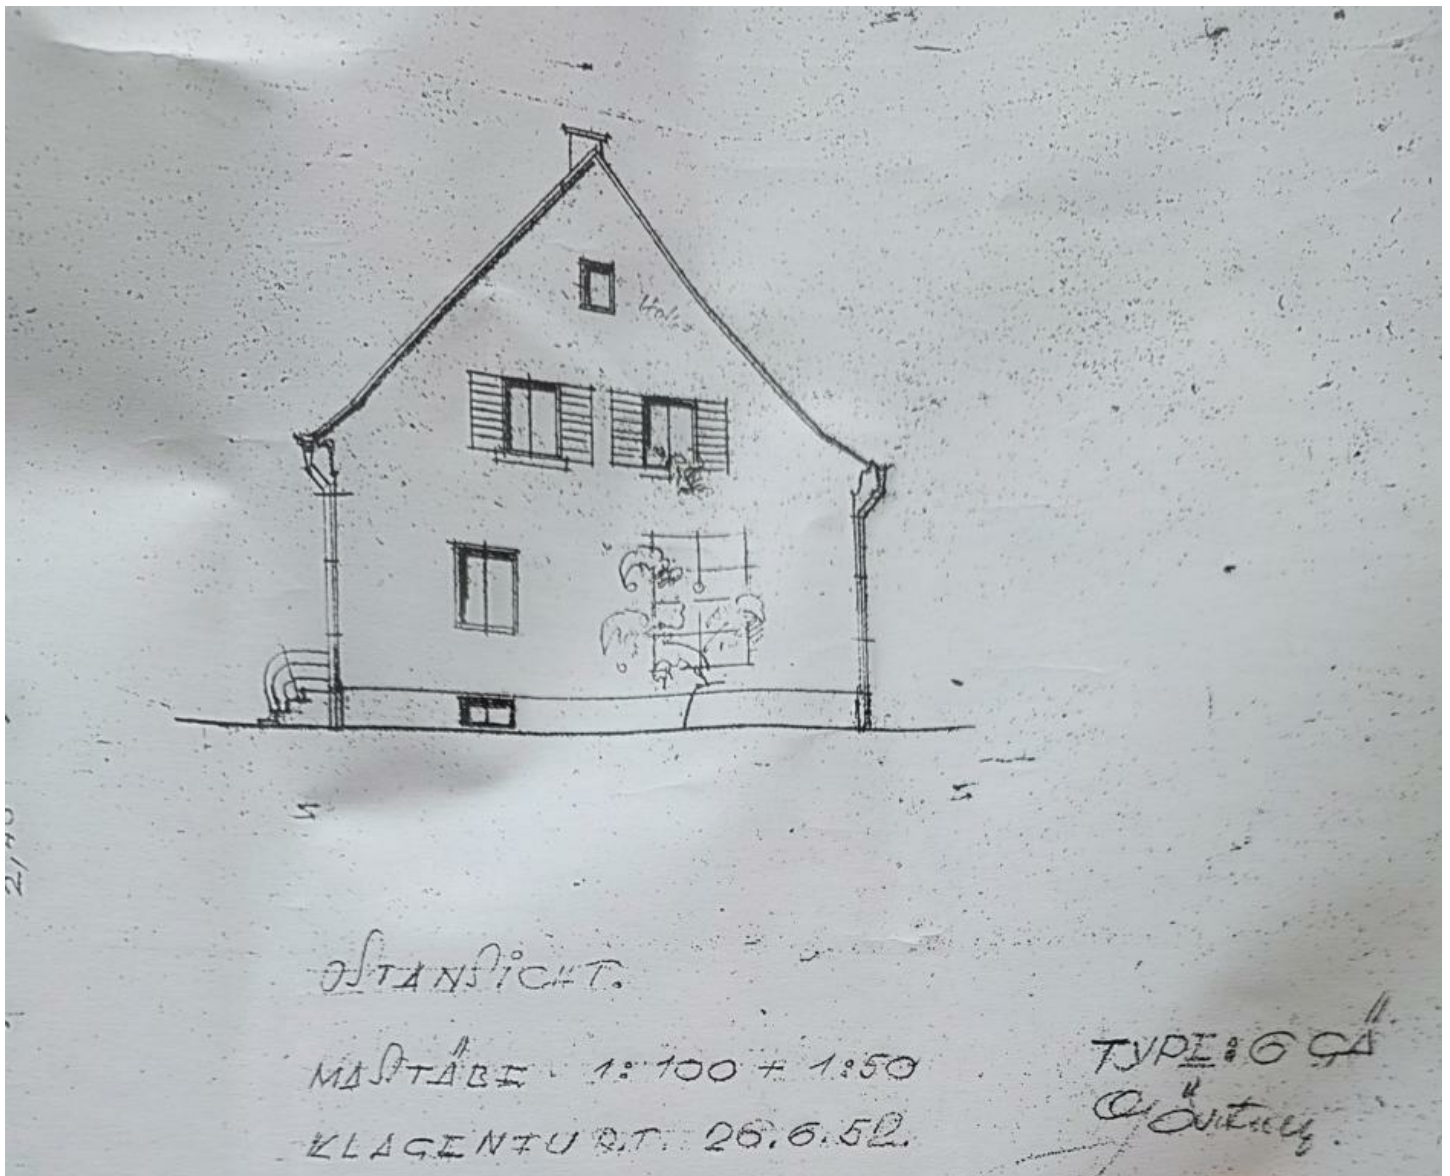 OSTANSICHT.
MASTÄBE 1:100 + 1:50
KLAGENFURT. 26.6.52.
TYPE: 6 GÄ